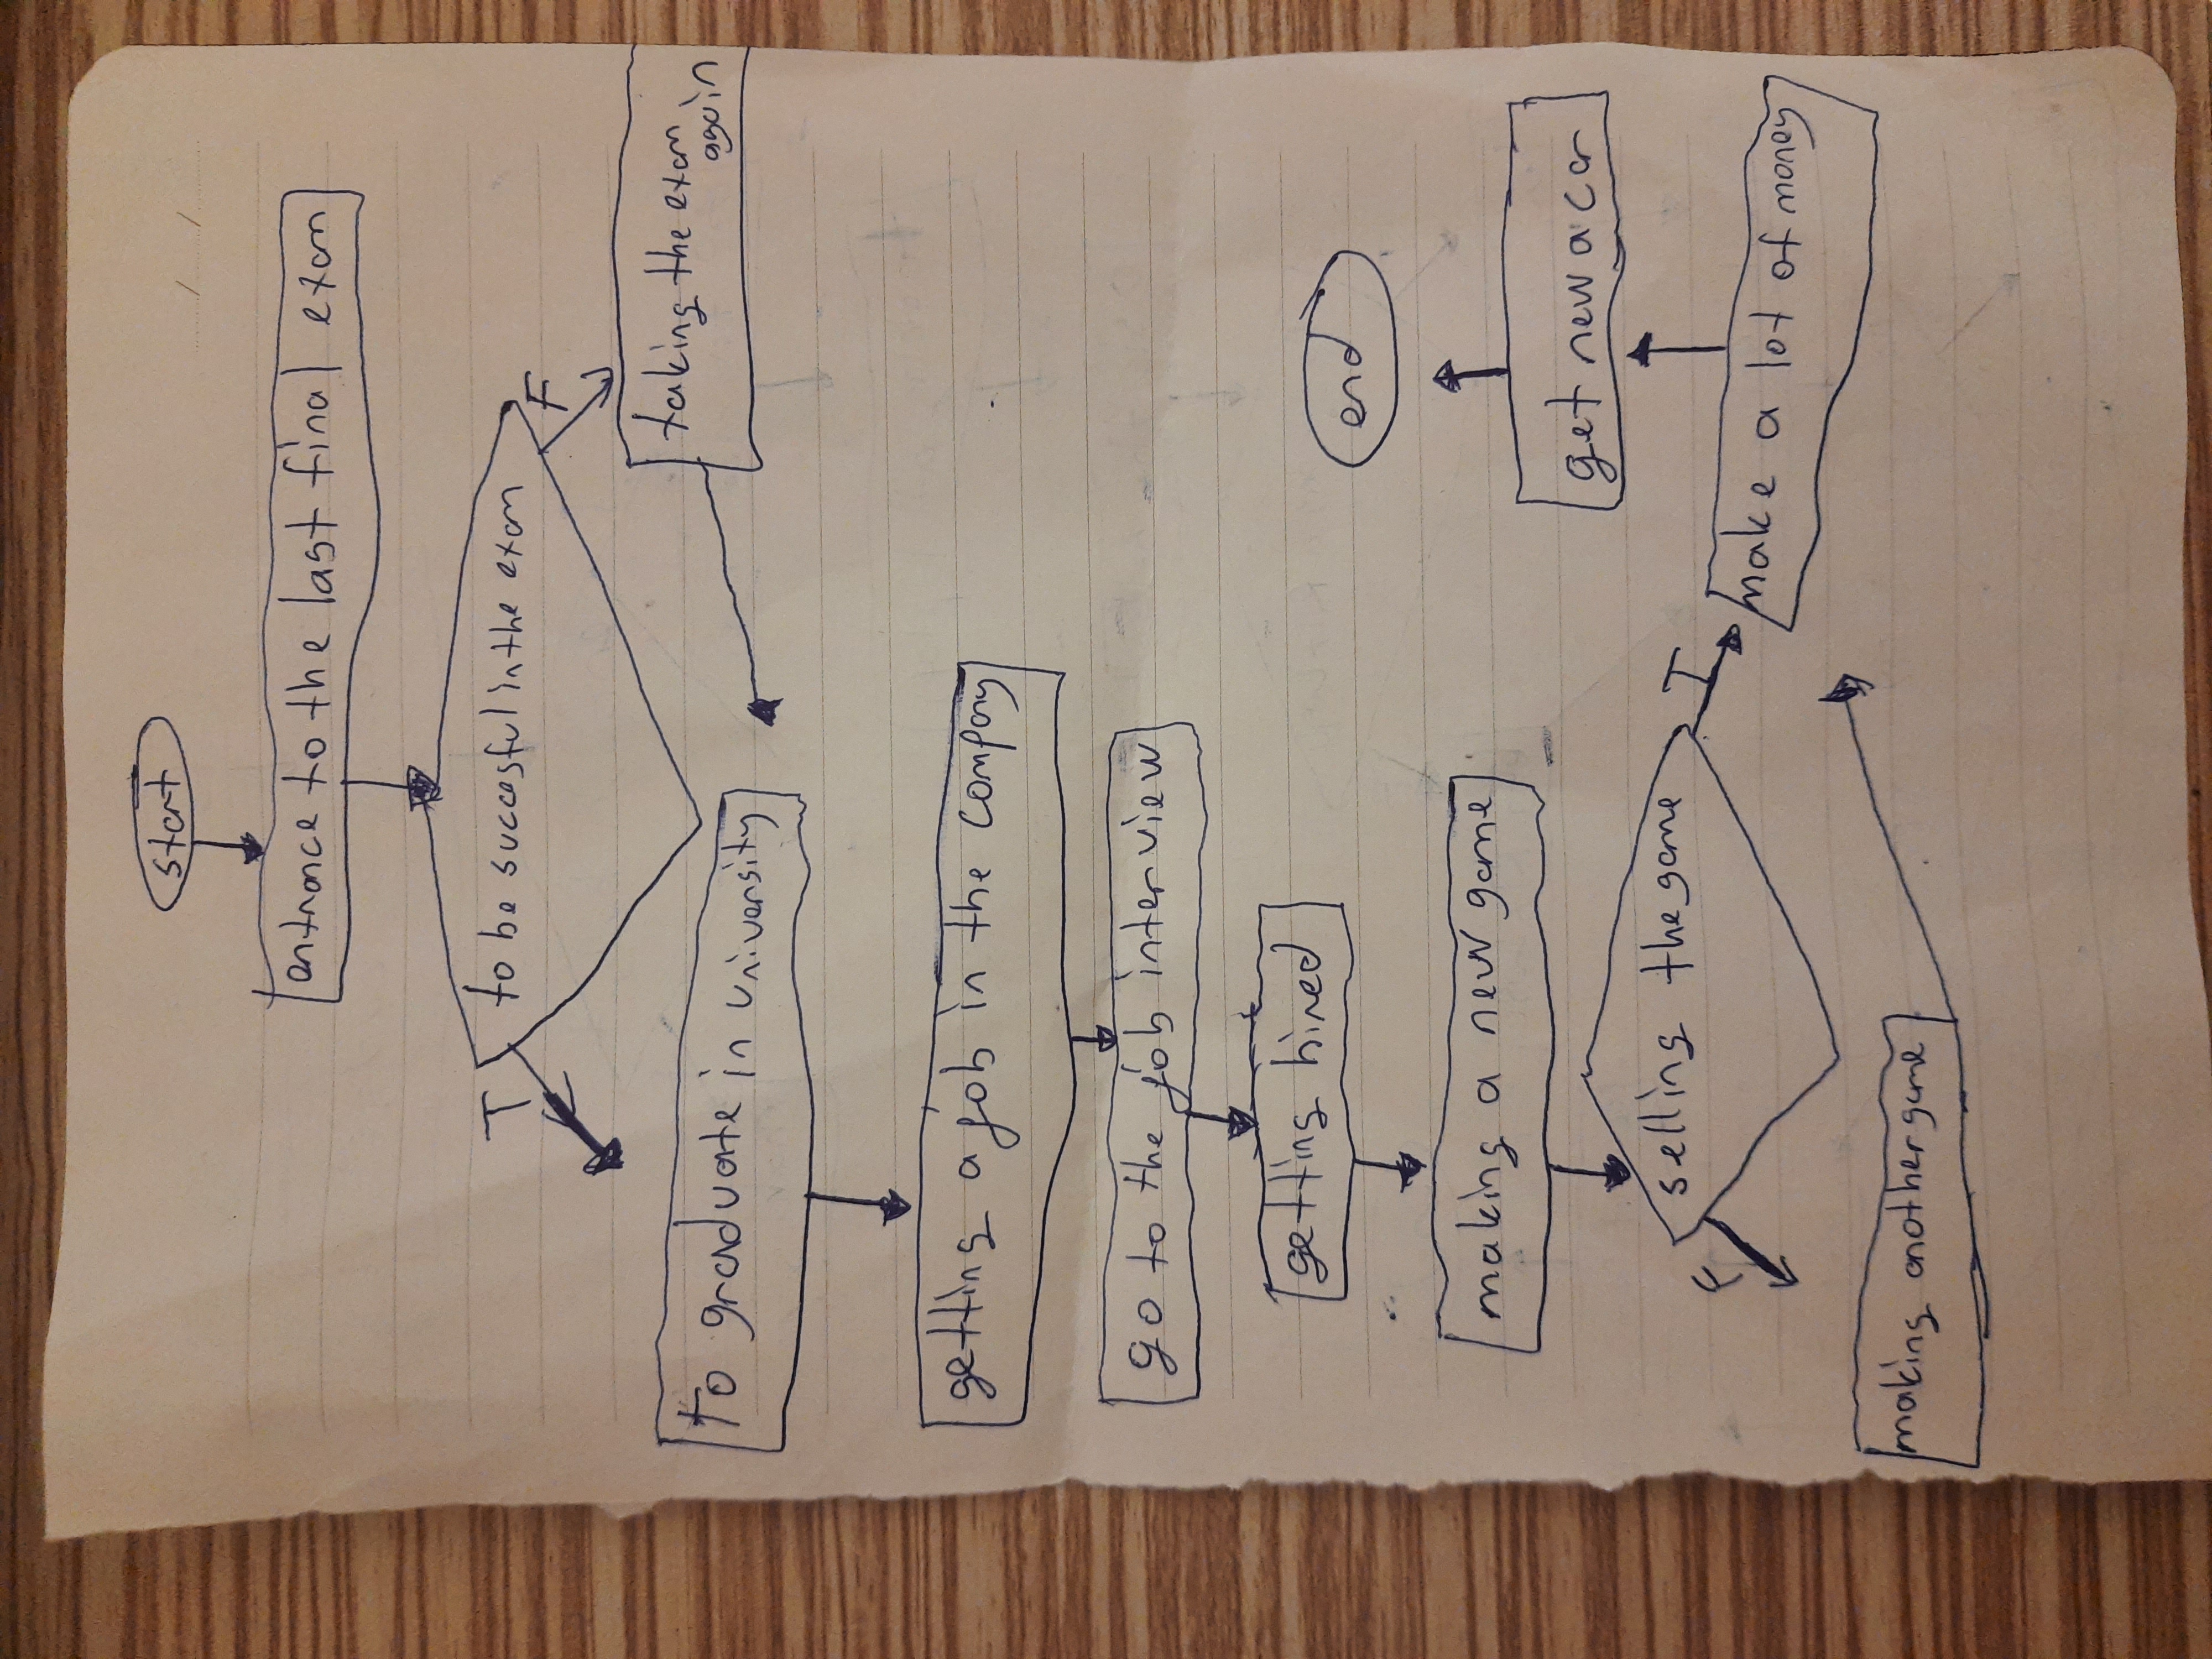 start
entrance to the last final exam
to be succesful in the exam
T
F
taking the exam
again
to graduate in university
getting a job in the company
go to the job interview
getting hired
making a new game
selling the game
F
T
making another game
make a lot of money
get new a car
end